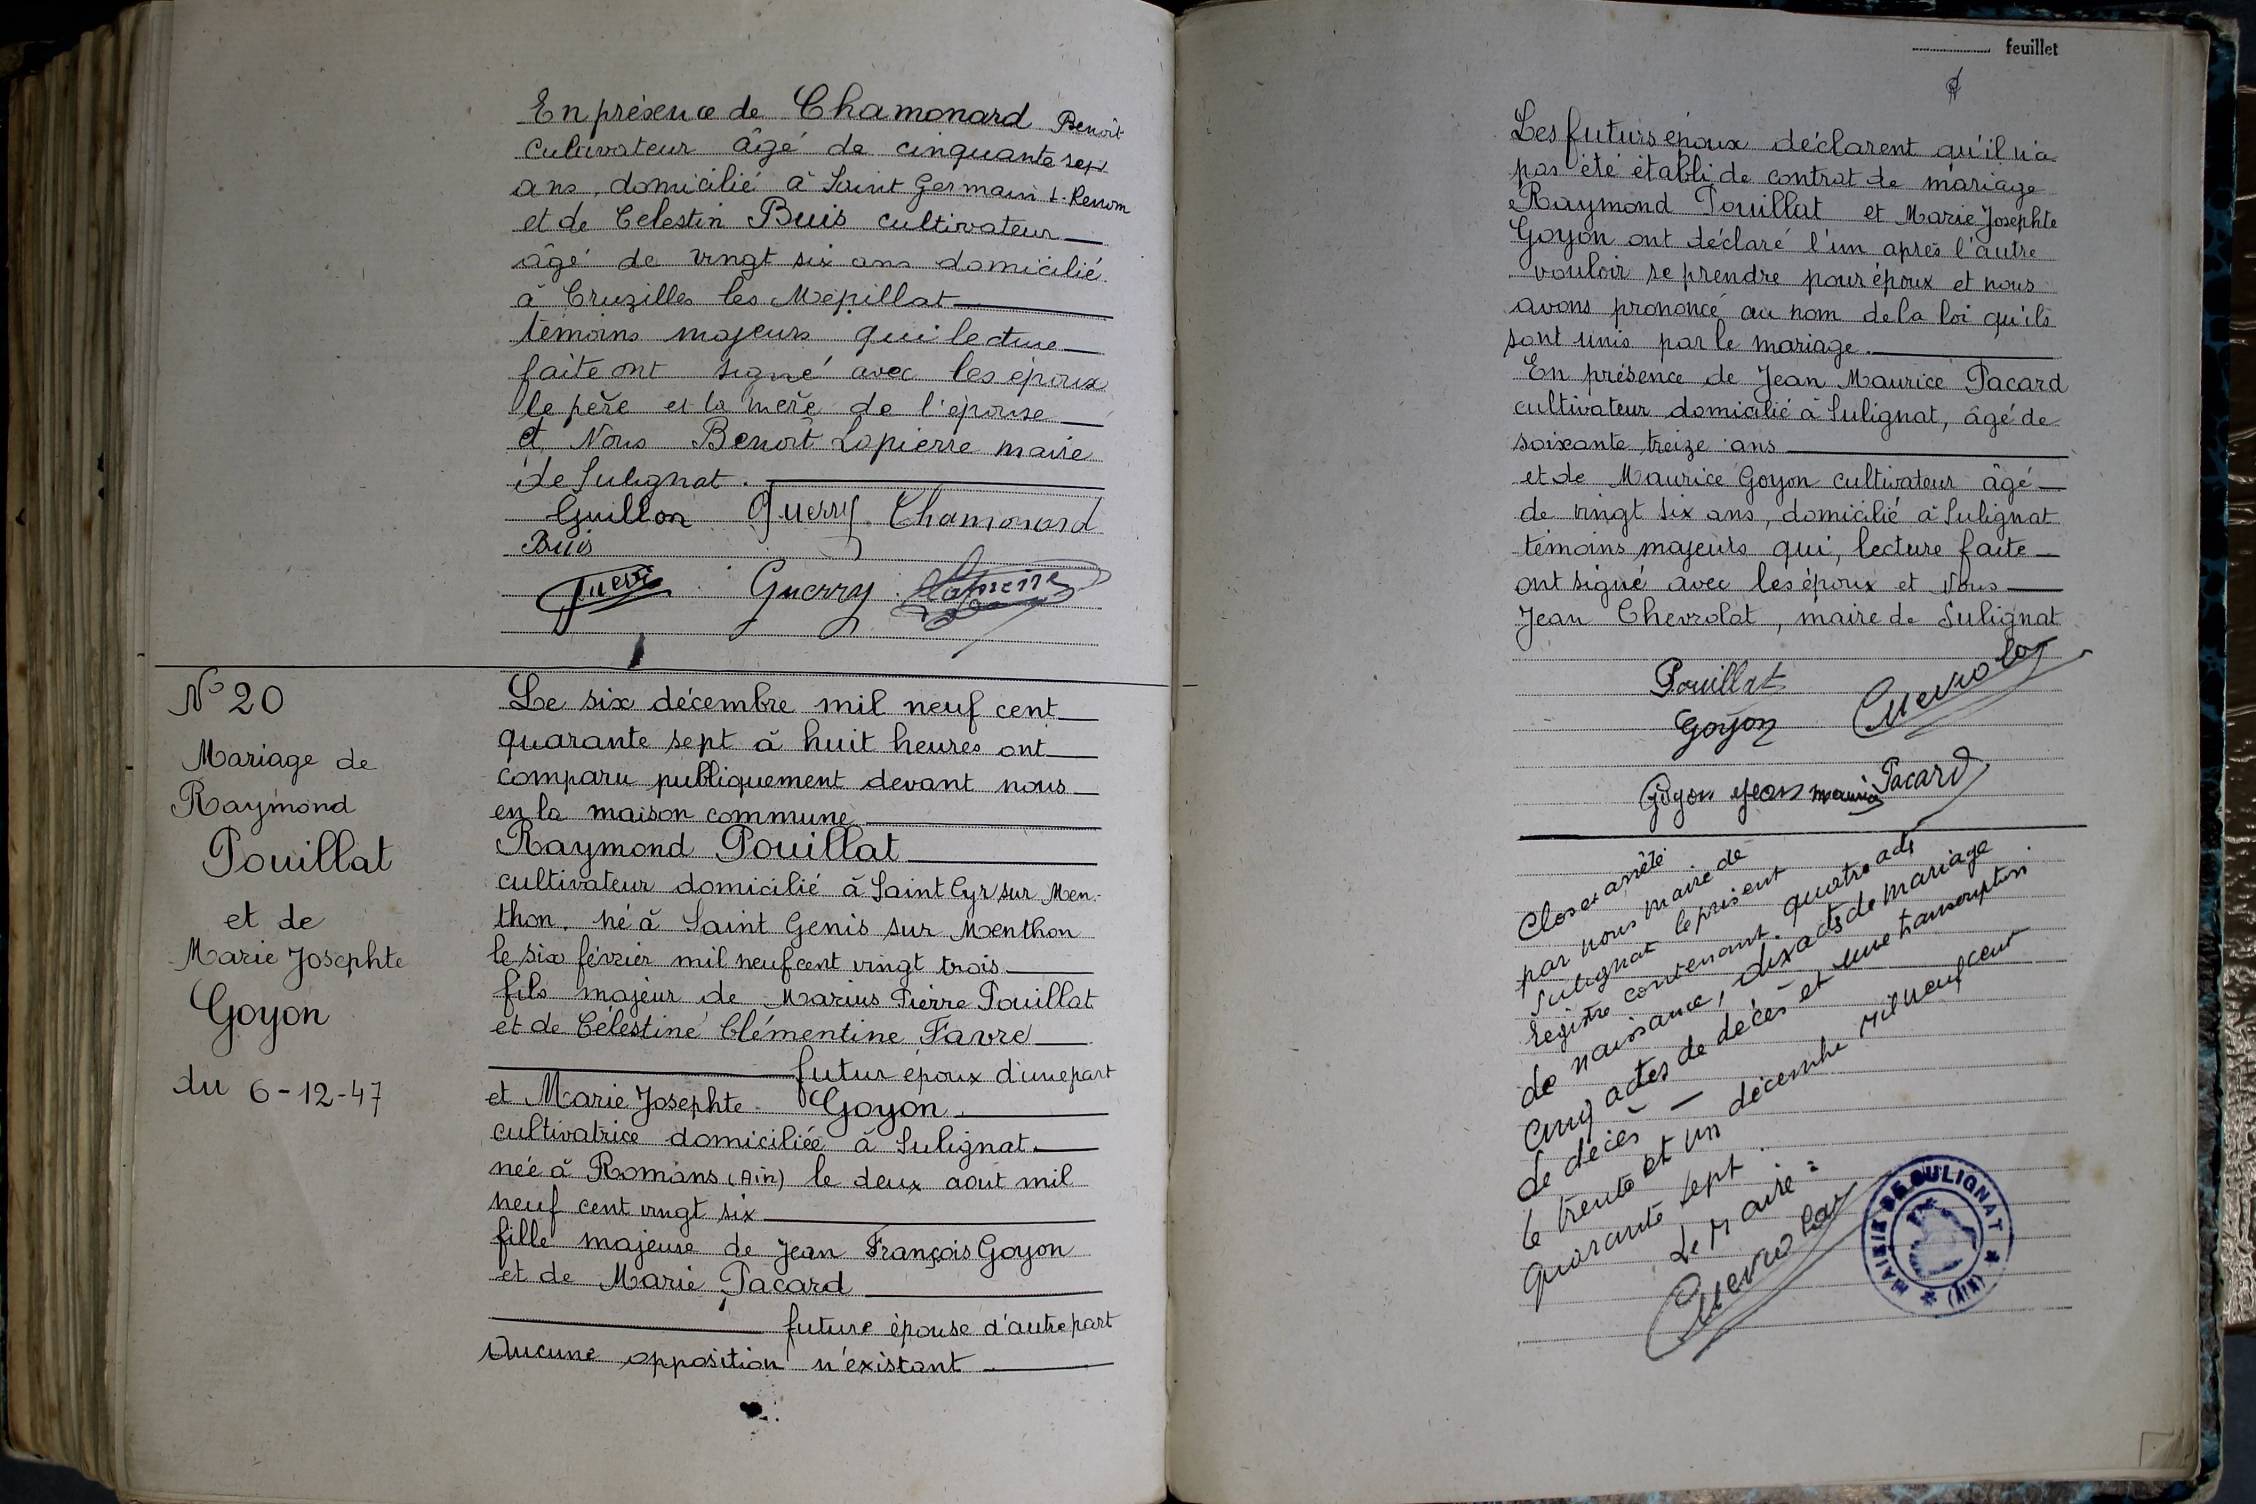 En présence de Chamonard Benoît
cultivateur âgé de cinquante sept
ans, domicilié à Saint Germain s. Renom
et de Célestin Buis cultivateur
âgé de vingt six ans domicilié
à Cruzilles les Mépillat
témoins majeurs qui lecture
faite ont signé avec les époux
le père et la mère de l'épouse
et Nous Benoît Lapierre maire
de Sulignat.
Guillon Guerry Chamonard
Buis
Guerry Lapierre
N° 20
Mariage de
Raymond
Pouillat
et de
Marie Josephte
Goyon
du 6-12-47
Le six décembre mil neuf cent
quarante sept à huit heures ont
comparu publiquement devant nous
en la maison commune
Raymond Pouillat
cultivateur domicilié à Saint Cyr sur Men-
thon, né à Saint Genis sur Menthon
le six février mil neuf cent vingt trois
fils majeur de Marius Pierre Pouillat
et de Célestine Clémentine Favre
futur époux d'une part
et Marie Josephte Goyon
cultivatrice domiciliée à Sulignat
née à Romans (Ain) le deux aout mil
neuf cent vingt six
fille majeure de Jean François Goyon
et de Marie Pacard
future épouse d'autre part
Aucune opposition n'existant
feuillet
Les futurs époux déclarent qu'il n'a
pas été établi de contrat de mariage
Raymond Pouillat et Marie Josephte
Goyon ont déclaré l'un après l'autre
vouloir se prendre pour époux et nous
avons prononcé au nom de la loi qu'ils
sont unis par le mariage.
En présence de Jean Maurice Pacard
cultivateur domicilié à Sulignat, âgé de
soixante treize ans
et de Maurice Goyon cultivateur âgé
de vingt six ans, domicilié à Sulignat
témoins majeurs qui, lecture faite
ont signé avec les époux et Nous
Jean Chevrolat, maire de Sulignat
Pouillat Chevrolat
Goyon
Goyon Jean Maurice Pacard
Clos et arrêté
par nous maire de
Sulignat le présent
registre contenant quatre acts
de naissance, dix acts de mariage
cinq actes de décès et une transcription
de décès —
le trente et un décembre mil neuf cent
quarante sept.
Le Maire :
Chevrolat
MAIRIE DE SULIGNAT
★ (AIN) ★